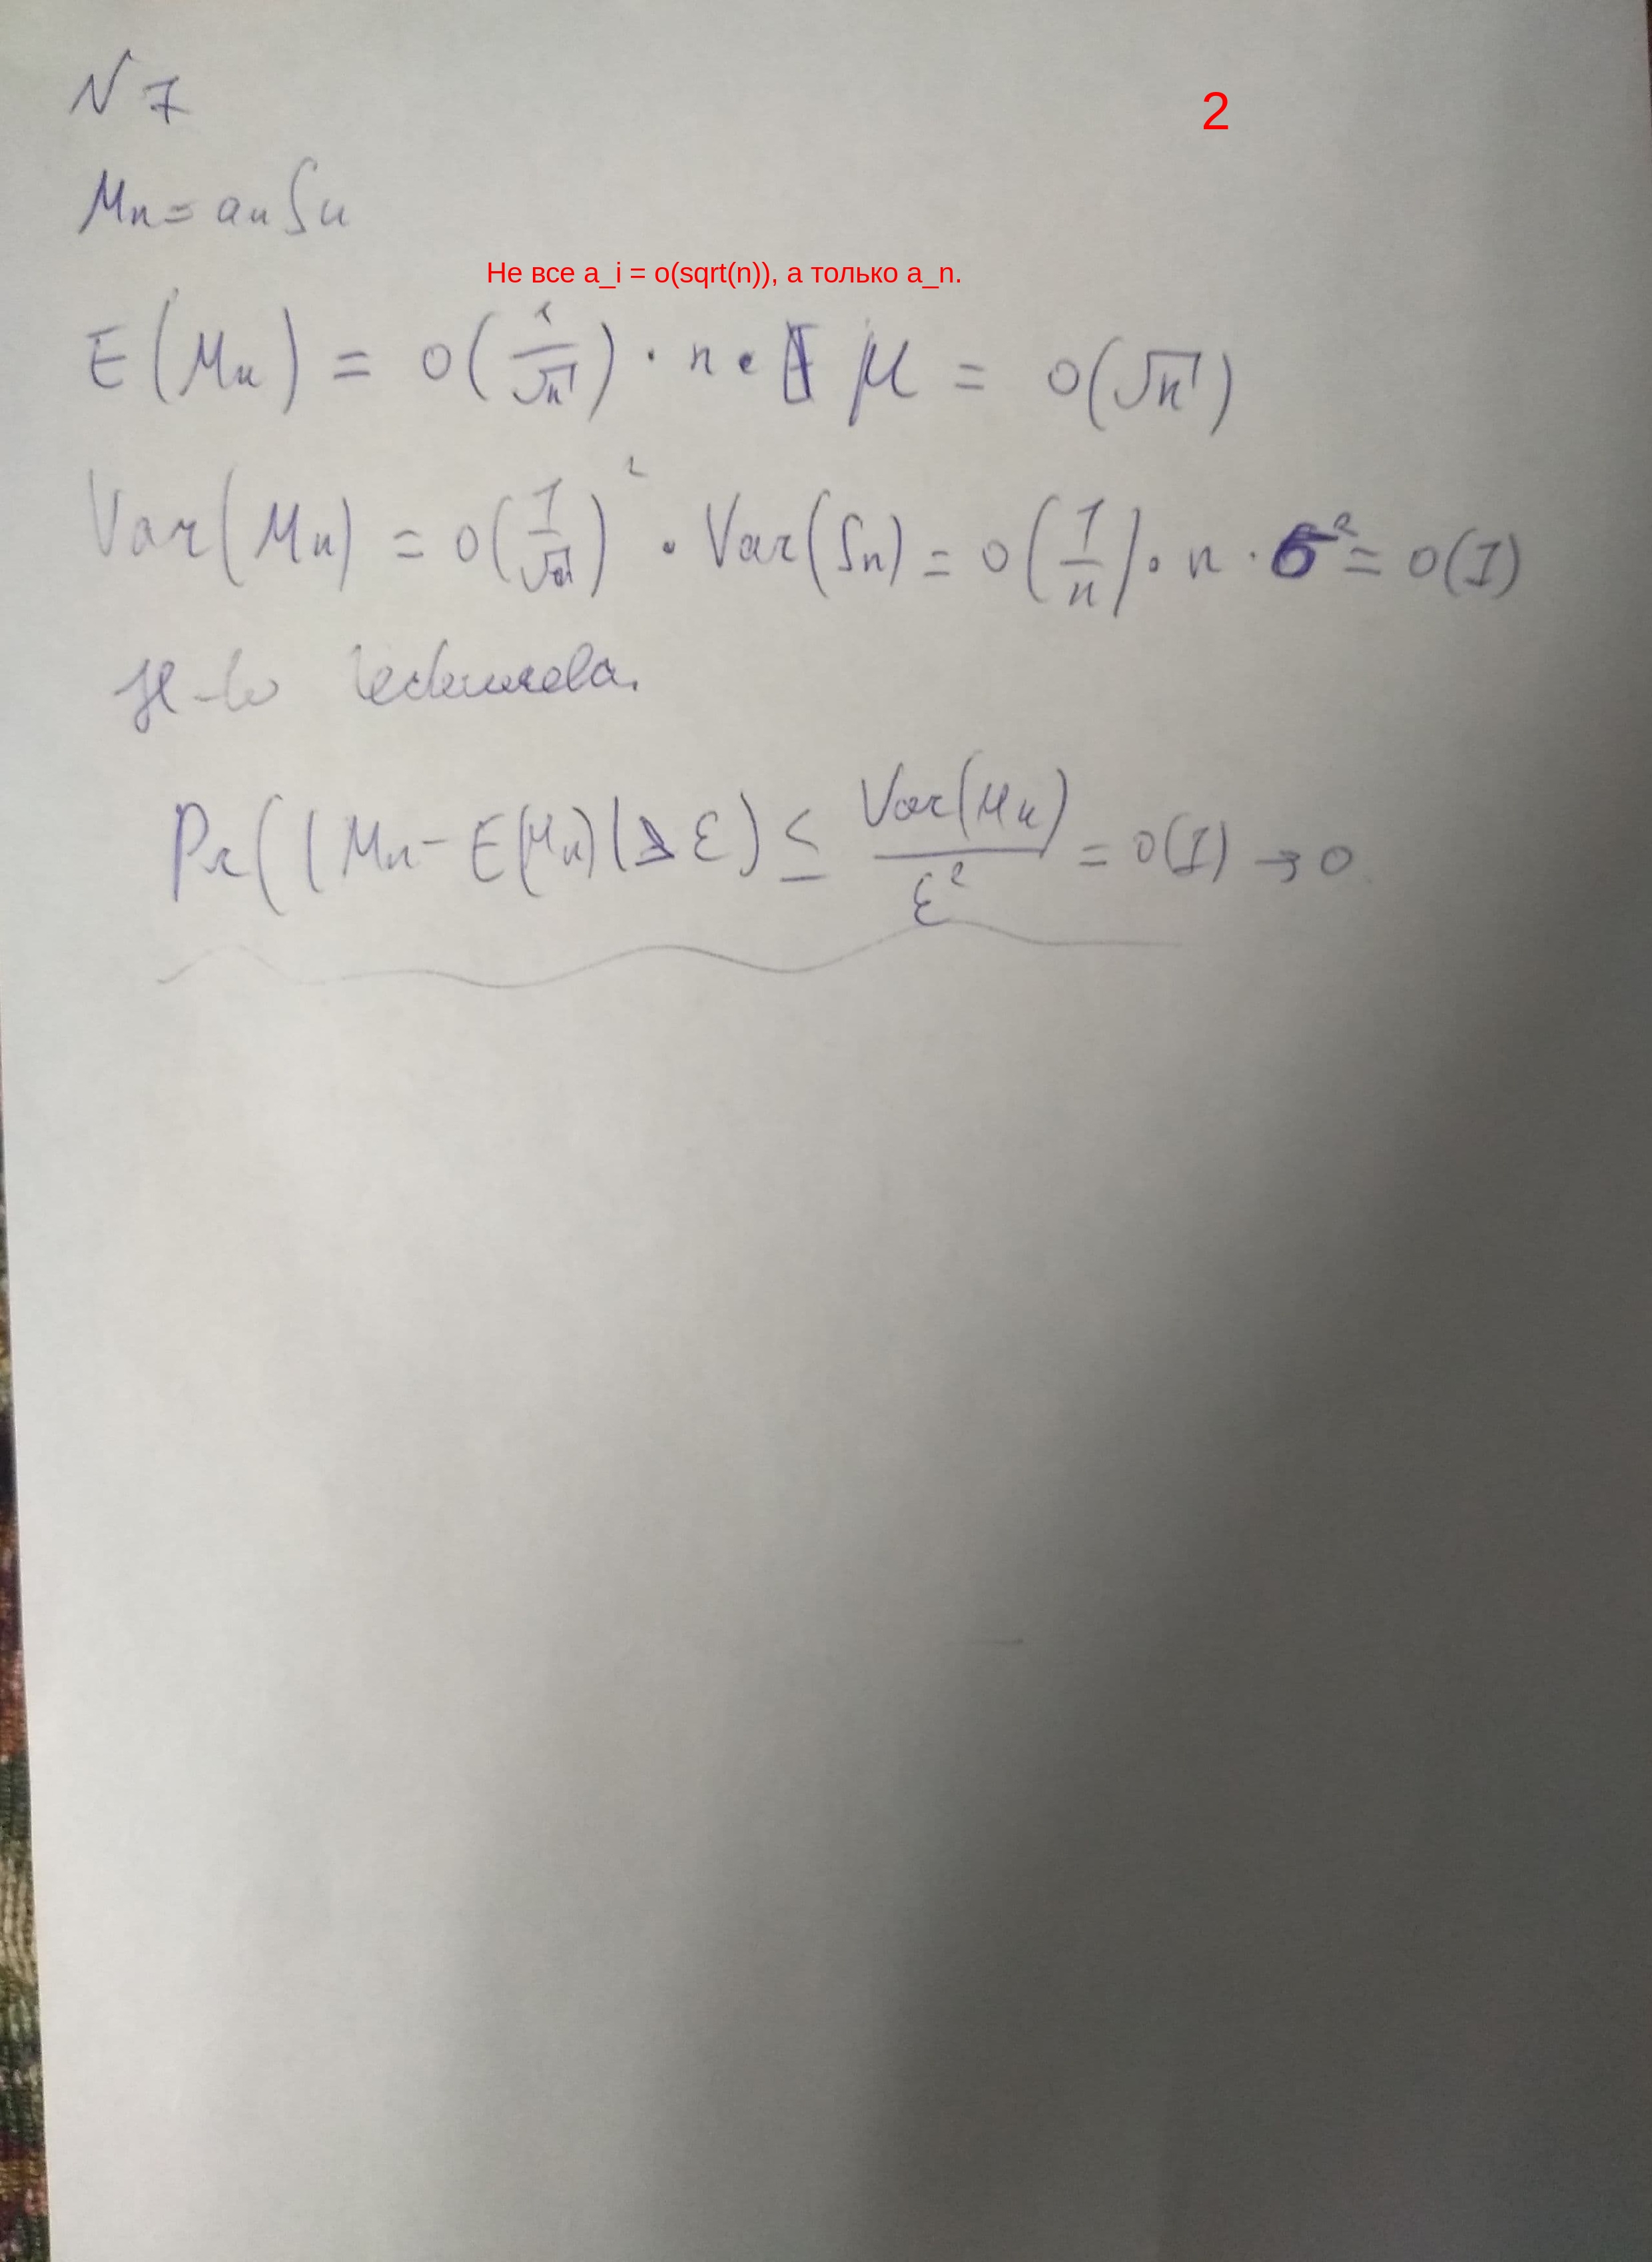 N 7
2
Mn = an Sn
Не все a_i = o(sqrt(n)), а только a_n.
E(Mn) = o(1/√n) · n · μ = o(√n)
Var(Mn) = o(1/√n)² · Var(Sn) = o(1/n) · n · σ² = o(1)
Н-во Чебышева.
Pr(|Mn - E(Mn)| ≥ ε) ≤ Var(Mn)/ε² = o(1) → 0